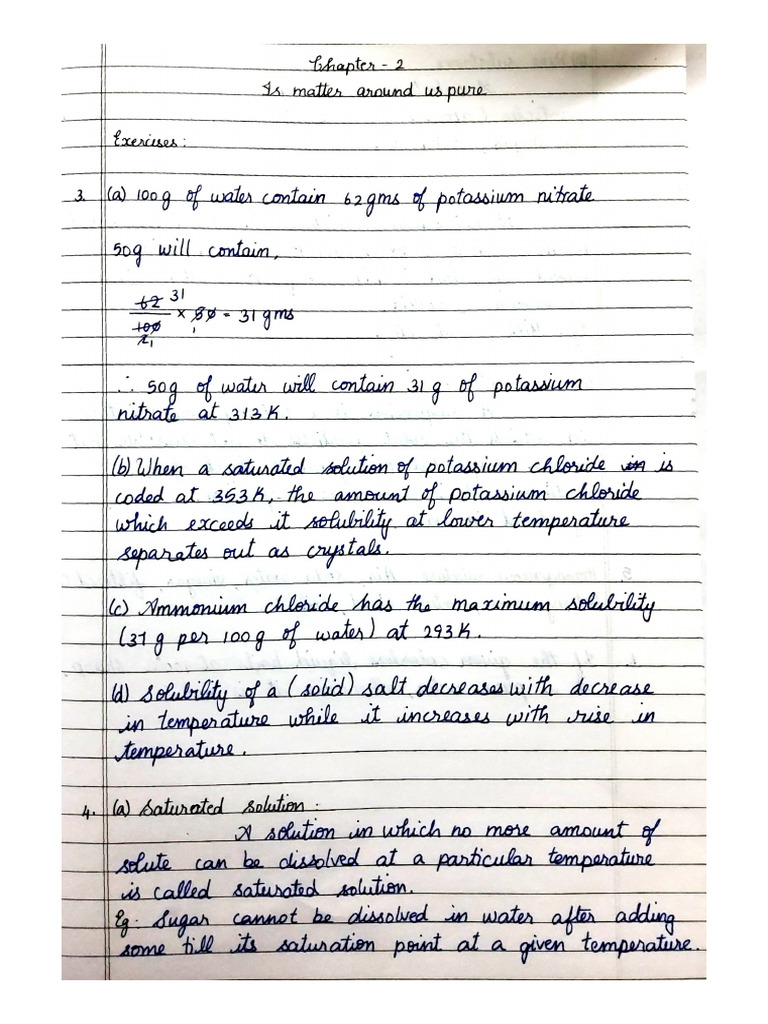 Chapter - 2
Is matter around us pure
Exercises:
3. (a) 100g of water contain 62gms of potassium nitrate
50g will contain,
62 31
100 × 50 = 31 gms
2 1 1
∴ 50g of water will contain 31 g of potassium
nitrate at 313K.
(b) When a saturated solution of potassium chloride in is
coded at 353K, the amount of potassium chloride
which exceeds it solubility at lower temperature
separates out as crystals.
(c) Ammonium chloride has the maximum solubility
(37 g per 100g of water) at 293K.
(d) Solubility of a (solid) salt decreases with decrease
in temperature while it increases with rise in
temperature.
4. (a) Saturated solution:
A solution in which no more amount of
solute can be dissolved at a particular temperature
is called saturated solution.
Eg: Sugar cannot be dissolved in water after adding
some till its saturation point at a given temperature.